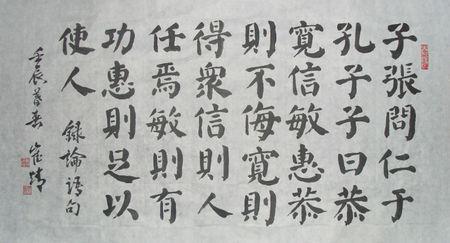 子張問仁于
孔子子曰恭
寬信敏惠恭
則不侮寬則
得眾信則人
任焉敏則有
功惠則足以
使人 錄論語句
壬辰暮春